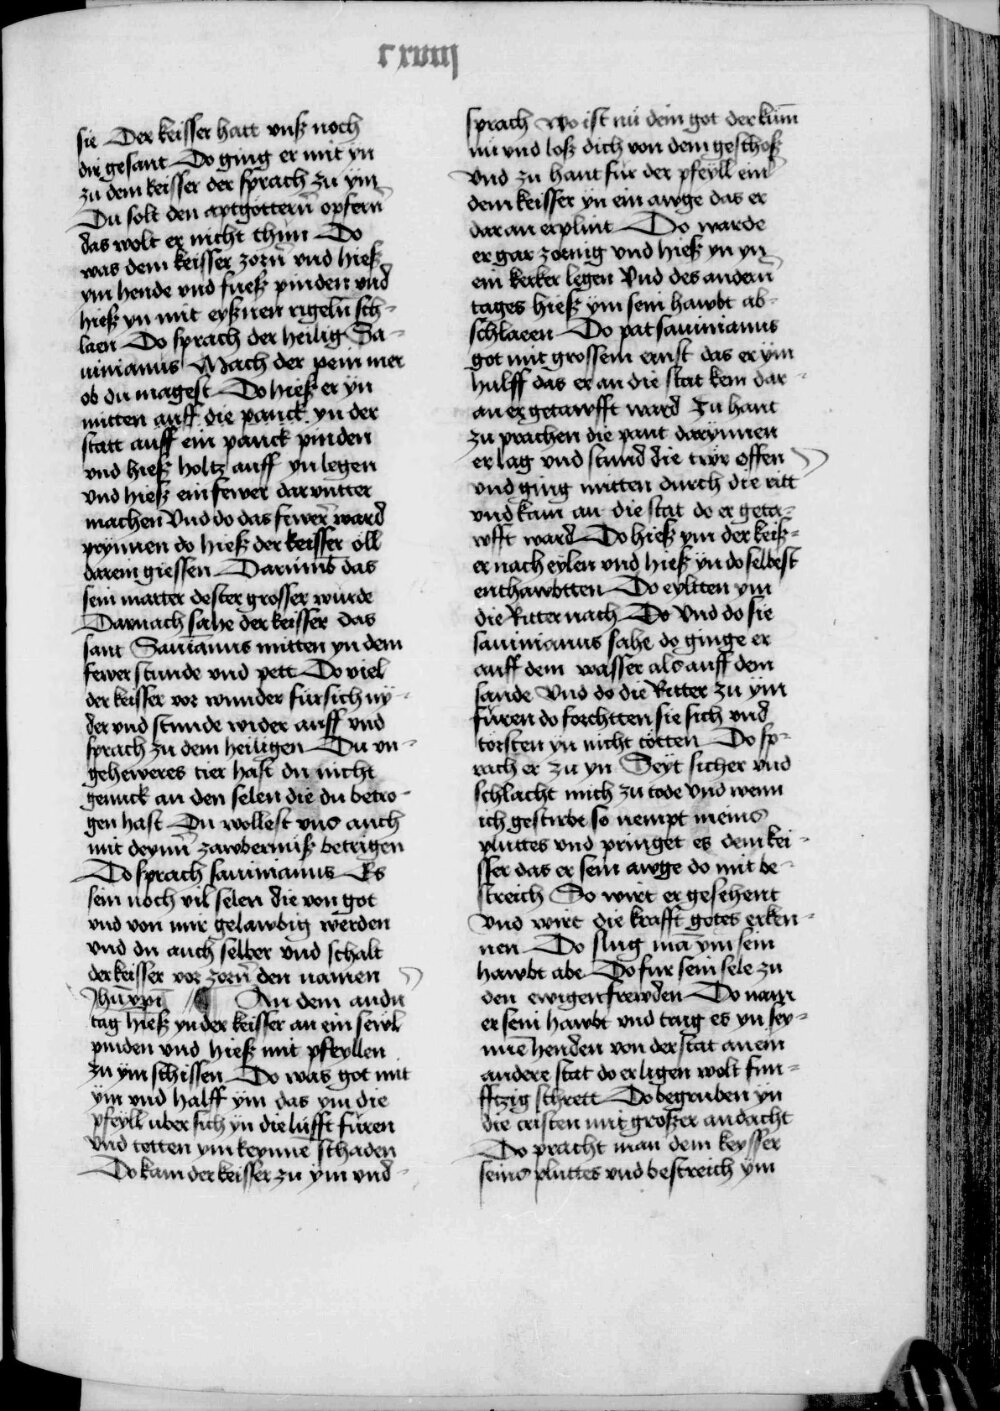 cxviiij
sie Der keisser hatt vnß noch
dir gesant Do ging er mit yn
zu dem keisser der sprach zu ym
Du solt den aptgöttern̄ opfern̄
das wolt er nicht thun Do
was dem keisser zorn̄ vnd hieß
ym hende vnd fueß pinden vnd
hieß yn mit eyßnen rigeln̄ sch-
laen Do sprach der heilig Sa-
uinianus Mach der pein mer
ob du magest Do hieß er yn
mitten auff die panck yn der
statt auff ein panck pinden
vnd hieß holtz auff yn legen
vnd hieß ein fewer darvntter
machen Vnd do das fewer ward
prynnen do hieß der keisser öll
darein giessen Darumb das
sein marter dester grosser wurde
Darnach sahe der keisser das
sant Sauianus mitten yn dem
fewer stunde vnd pett Do viel
der keisser vor wunder für sich ny-
der vnd stunde wider auff vnd
sprach zu dem heiligen Du vn-
geheweres tier hast du nicht
genuck an den selen die du betro-
gen hast Du wollest vns auch
mit deynn̄ zawbernuß betrigen
Do sprach sauinianus Es
sein noch vil selen die von got
vnd von mir gelawbig werden
vnd du auch selber vnd schalt
der keisser vor zorn̄ den namen
Jhū xpī An dem andn
tag hieß yn der keisser an ein sewl
pinden vnd hieß mit pfeyllen
zu ym schissen Do was got mit
ym vnd halff ym das ym die
pfeyll vber sich yn die lüfft füren
vnd tetten ym keynne schaden
Do kam der keisser zu ym vnd-
sprach wo ist nü dein got der kūm
nü vnd loß dich von dem geschoß
vnd zu hant für der pfeyll ein
dem keisser yn ein awge das er
dar an erplint Do warde
er gar zornig vnd hieß yn yn
ein kerker legen Vnd des andern̄
tages hieß ym sein hawbt ab-
schlaeen Do pat sauinianus
got mit grossem ernst das er ym
hulff das er an die stat kem dar-
an er getawfft ward Zu hant
zu prachen die pant darynnen
er lag vnd stund die twr offen
vnd ging mitten durch die ritt
vnd kam an die stat do er geta-
wfft ward Do hieß ym der keiß-
er nach eylen vnd hieß yn do selbest
enthawbtten Do eyltten ym
die Ritter nach Do Vnd do sie
sauinianus sahe do ginge er
auff dem wasser als auff dem
sande Vnd do die Ritter zu ym
füren do forchtten sie sich vnd
törsten yn nicht tötten Do sp-
rach er zu yn Seyt sicher vnd
schlacht mich zu tode vnd wenn
ich gestirbt so nempt meins
pluttes vnd pringet es dem kei-
sser das er sein awge do mit be-
streich So wirt er gesehent
vnd wirt die krafft gotes erken-
nen Do slug mā ym sein
hawbt abe Do fur sein sele zu
den ewigen frewden Do nam
er sein hawbt vnd trug es yn sey-
nnē henden von der stat an ein
andere stat do er ligen wolt fun-
fftzig schrett Do begruben yn
die cristen mit großer andacht
Do pracht man dem keysser
seins pluttes vnd bestreich ym